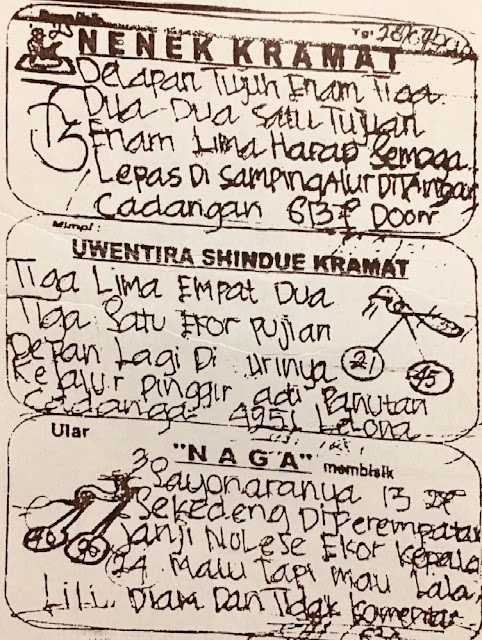 NENEK KRAMAT
Delapan Tujuh Enam Tiga
Dua Dua Satu Tujuan
Enam Lima Harap Semoga
Lepas Di Samping Alur Di Tangan
Cadangan 6137 Doorr
Mimpi :
UWENTIRA SHINDUE KRAMAT
Tiga Lima Empat Dua
Tiga Satu Ekor Pujian
Depan Lagi Di Urinya
Ke Jalur Pinggir adi Panutan
Cadanga 4251 Lelona
21
45
Ular
"NAGA" membisik
Sayonaranya 13
Sekedeng Di Perempatan
Janji Nolese Ekor Kepala
24 Malu Tapi Mau Lala
LiLi Diam Dan Tidak Komentar